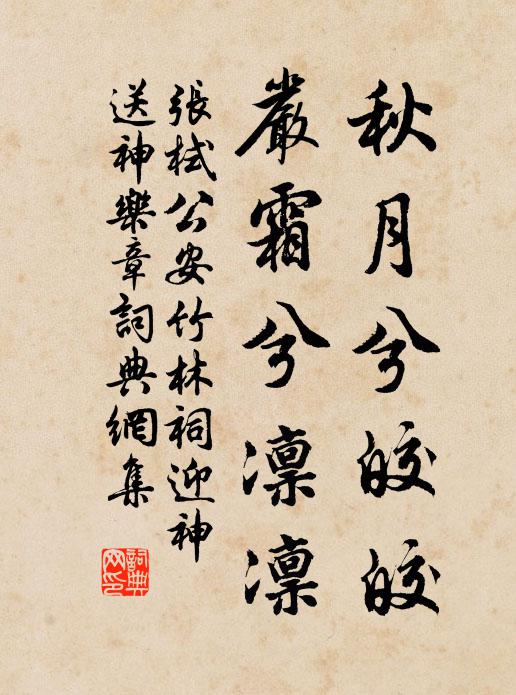 秋月兮皎皎
嚴霜兮凛凛
張栻公安竹林祠迎神
送神樂章詞典網集
詞典
网印